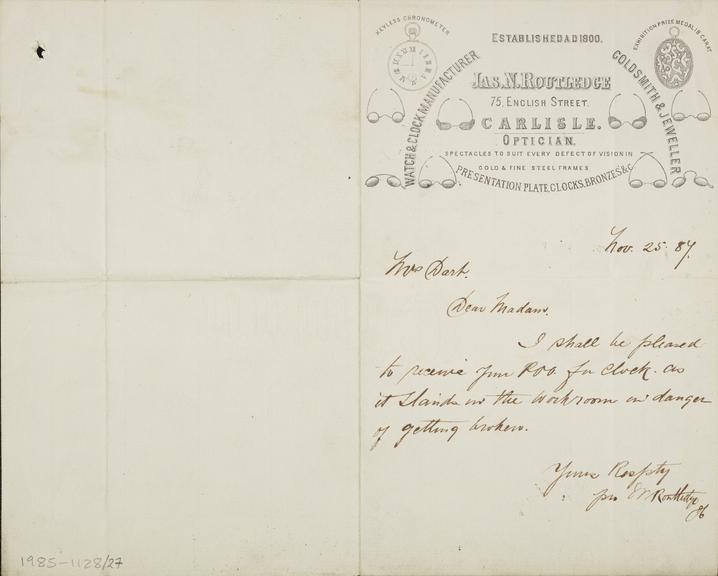 KEYLESS CHRONOMETER
ESTABLISHED A.D 1800.
EXHIBITION PRIZE MEDAL 18 CARAT
WATCH & CLOCK MANUFACTURER
JAS. N. ROUTLEDGE
GOLDSMITH & JEWELLER
75, ENGLISH STREET.
CARLISLE.
OPTICIAN.
SPECTACLES TO SUIT EVERY DEFECT OF VISION IN
GOLD & FINE STEEL FRAMES
PRESENTATION PLATE, CLOCKS, BRONZES, &C
Nov. 25. 87.
Mrs Dart.
Dear Madam.
I shall be pleased
to receive your P.O.O. for clock. as
it stands in the workroom in danger
of getting broken.
Yours Respfty
pro Routledge
1985-1128/27